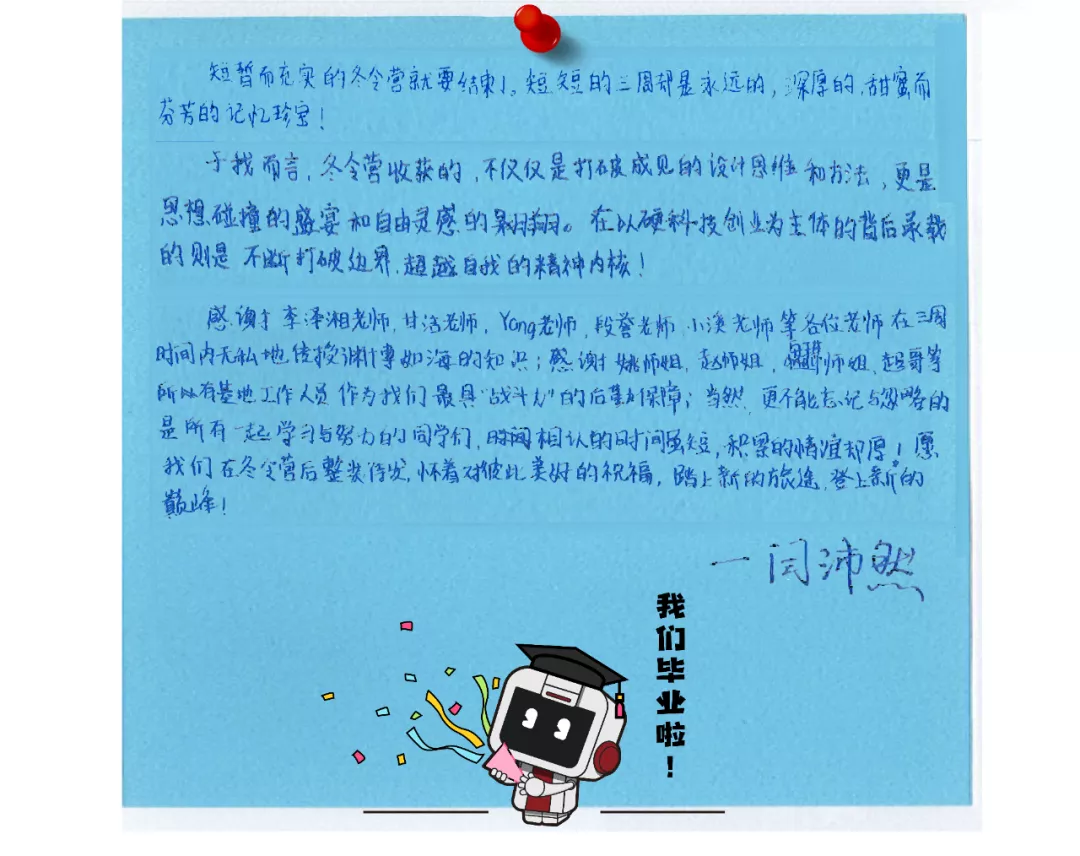 短暂而充实的冬令营就要结束了。短短的三周却是永远的，深厚的，甜蜜而
芬芳的记忆珍宝！
于我而言，冬令营收获的，不仅仅是打破成见的设计思维和方法，更是
思想碰撞的盛宴和自由灵感的翱翔。在以硬科技创业为主体的背后承载
的则是不断打破边界，超越自我的精神内核！
感谢李泽湘老师，甘洁老师，Yang老师，段誉老师小溪老师等各位老师在三周
时间内无私地传授渊博如海的知识；感谢姚师姐，赵师姐，师姐，超哥等
所有基地工作人员作为我们最具“战斗力”的后勤保障；当然，更不能忘记与忽略的
是所有一起学习与努力的同学们，时间相认的时间虽短，积累的情谊却厚！愿
我们在冬令营后整装待发，怀着对彼此美好的祝福，踏上新的旅途，登上新的
巅峰！
一闫沛然
我们毕业啦！